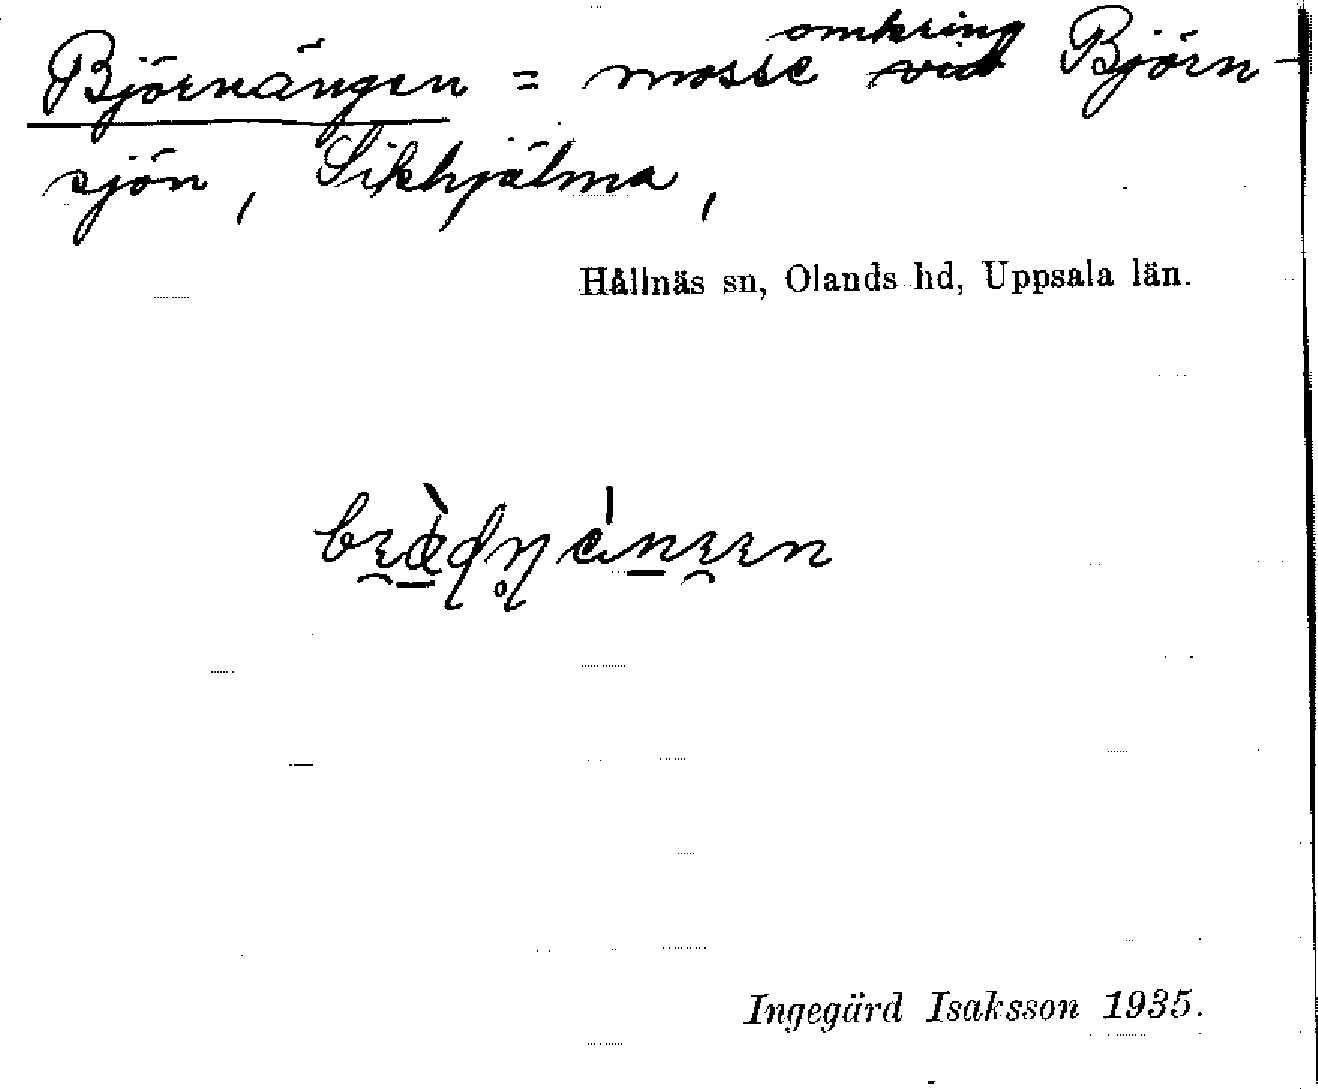 omkring
Björnängen = mosse vid Björn-
sjön, Sikhjälma,
Hållnäs sn, Olands hd, Uppsala län.
Ingegärd Isaksson 1935.